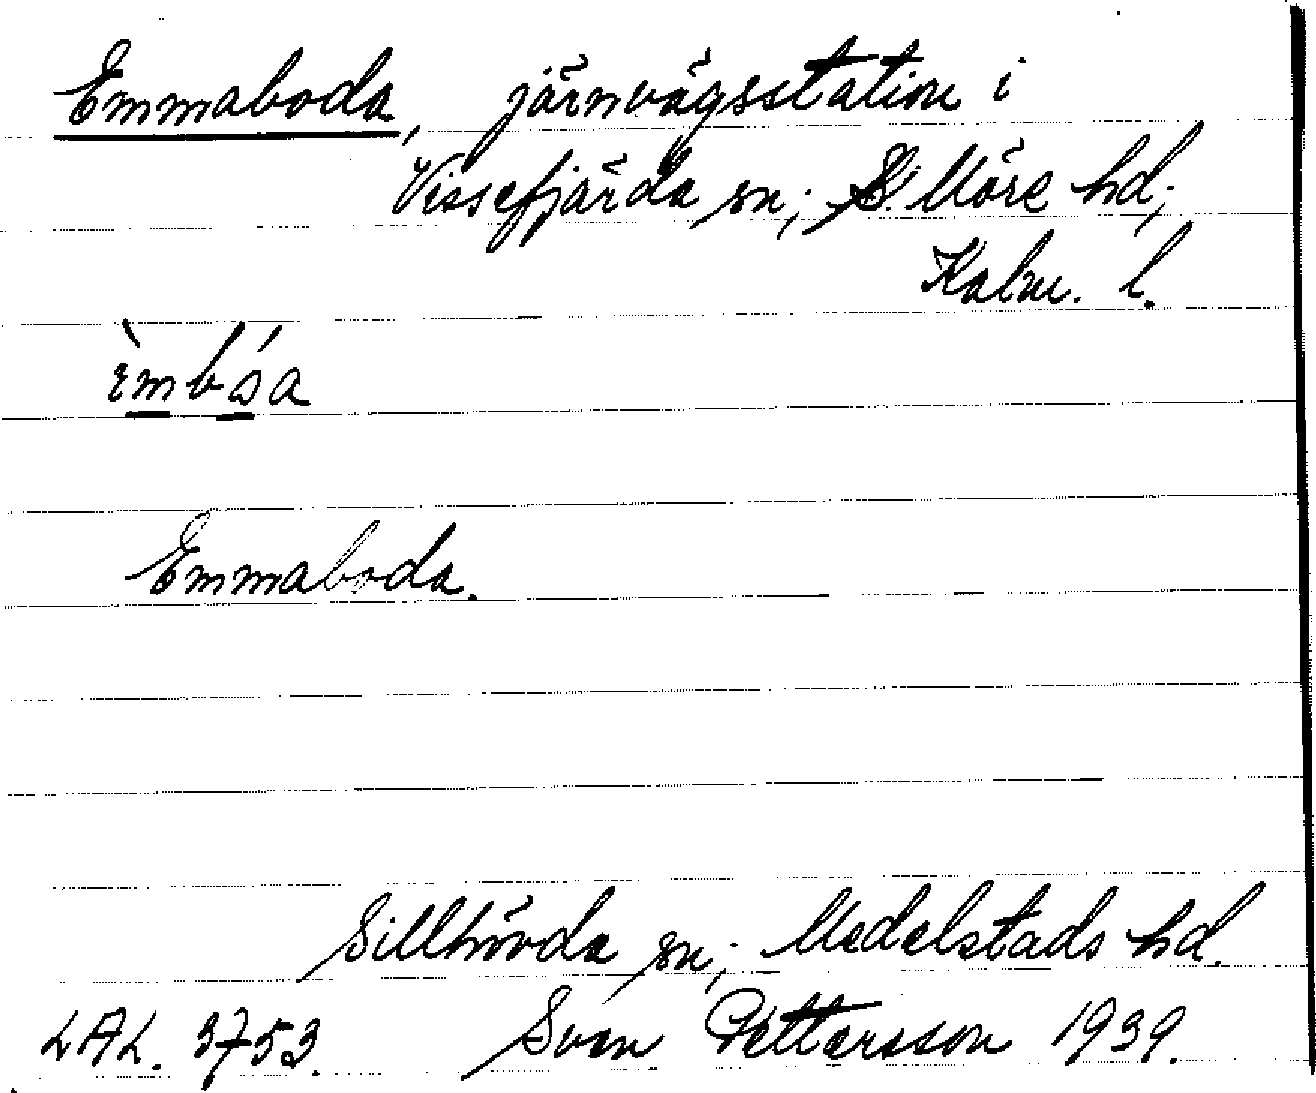 Emmaboda, järnvägsstation i
Vissefjärda sn; S. Möre hd;
Kalm. l.
Emmaboda.
Sillhövda sn; Medelstads hd.
LAL. 3753. Sven Pettersson 1939.